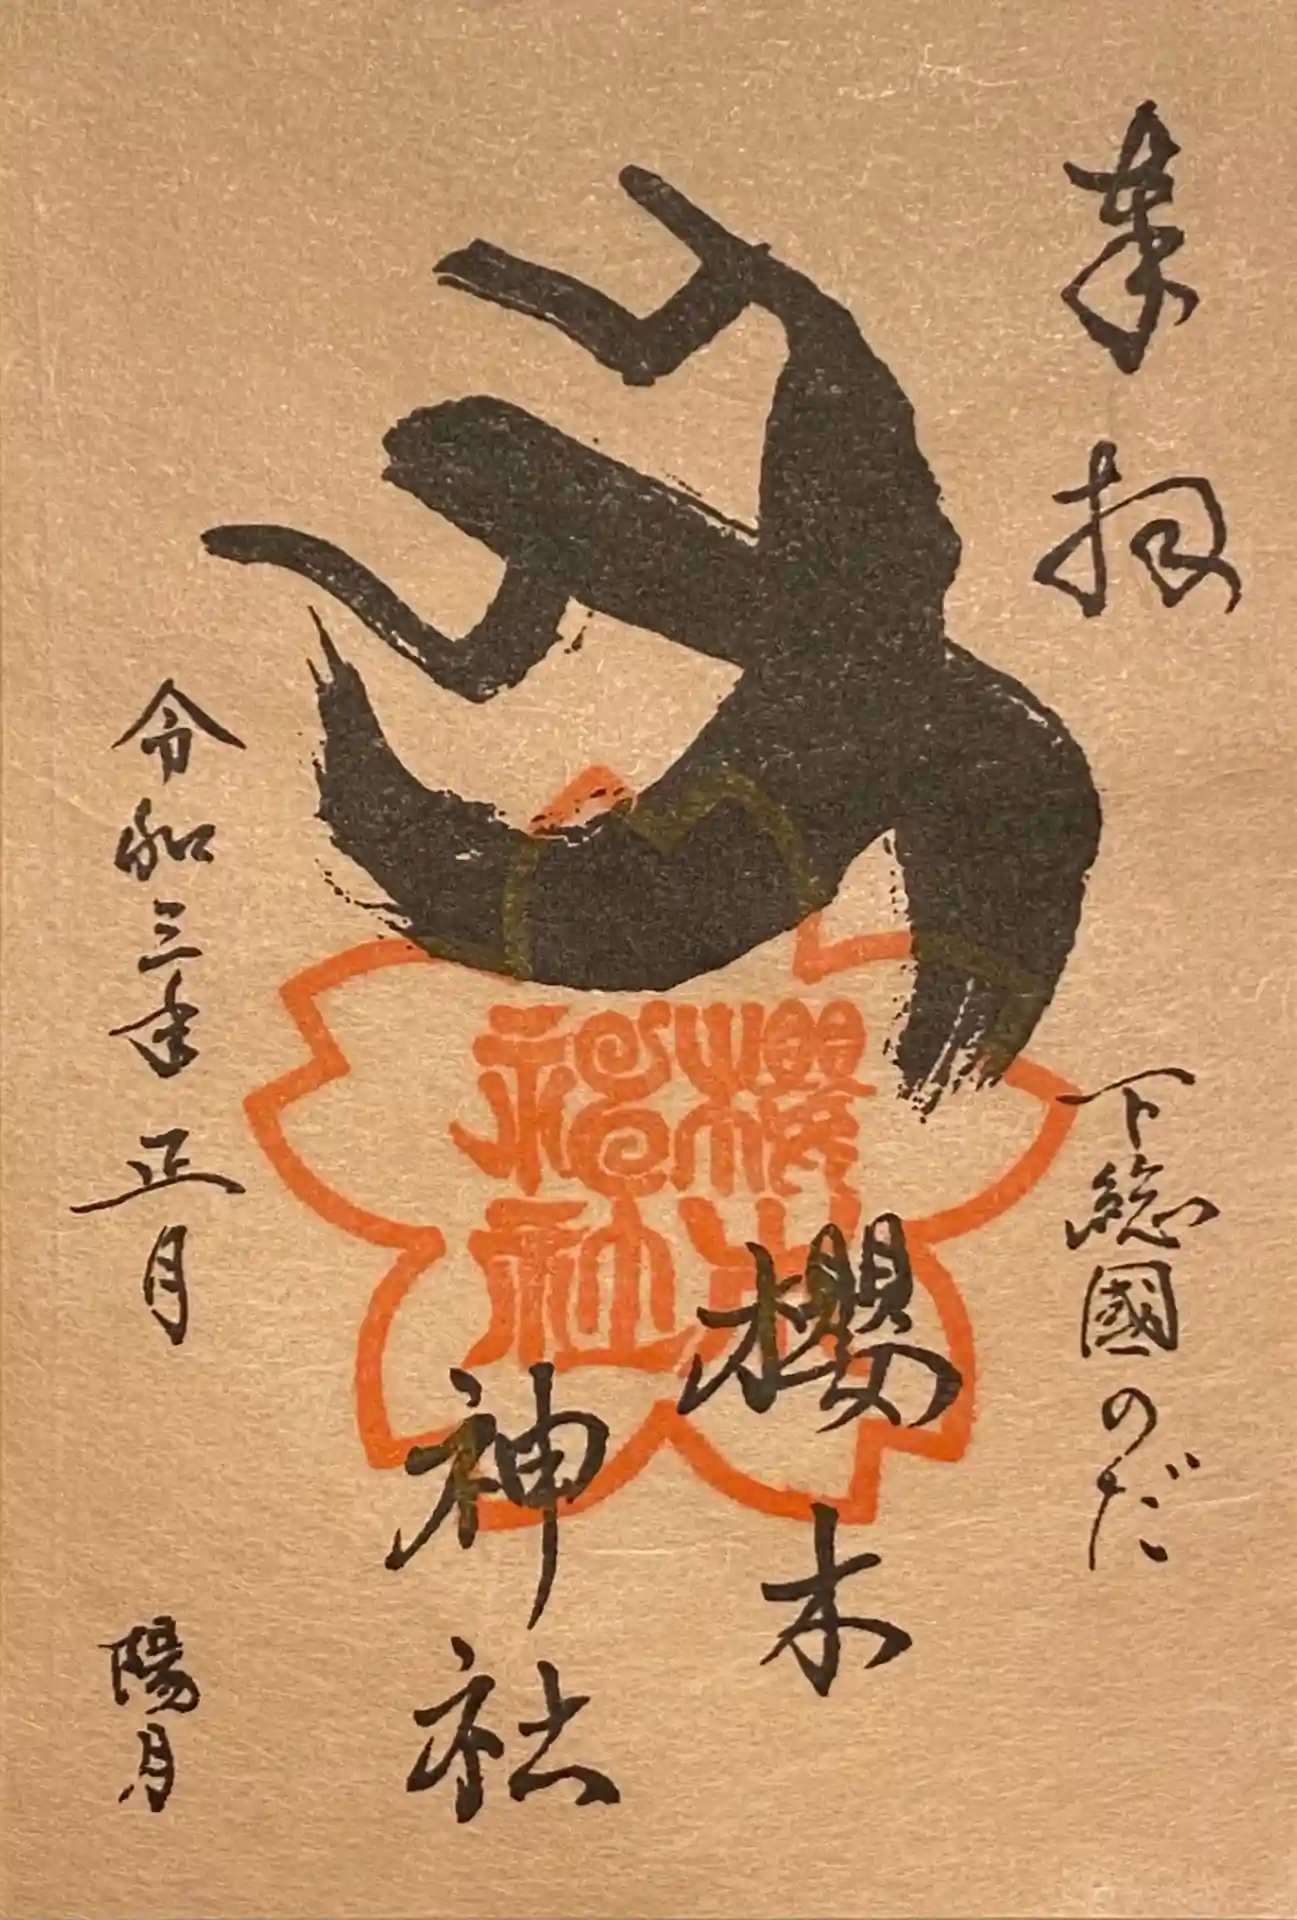 奉拝
下総國のだ
櫻木
神社
櫻木
神社
令和三年正月
陽月